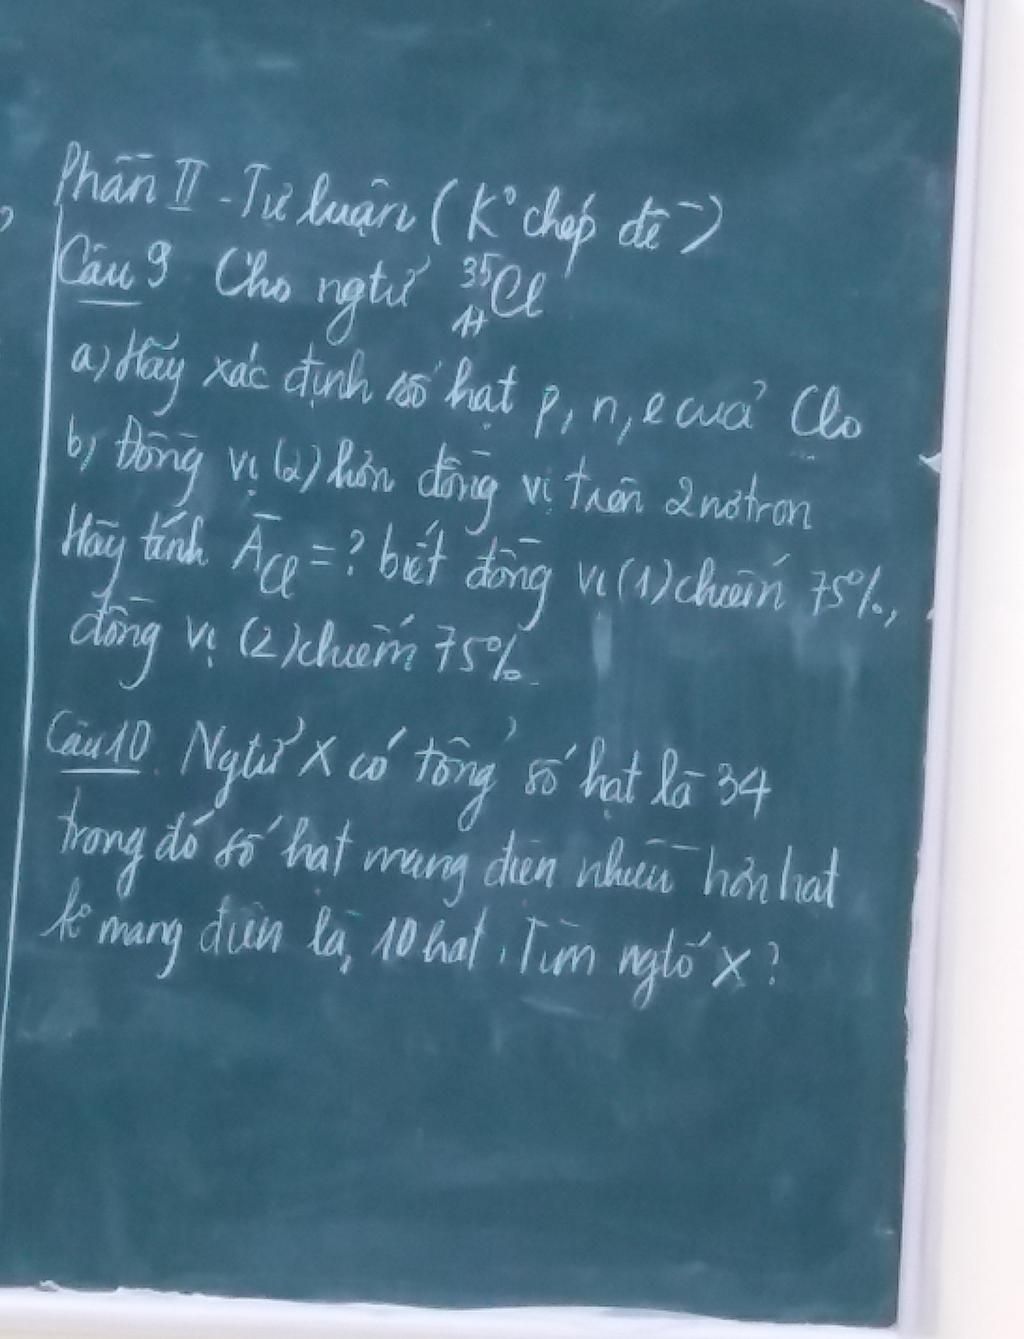 Phần II - Tự luận (K° chép đề)
Câu 9 Cho ngtử ³⁵₁₇Cl
a) Hãy xác định số hạt p, n, e của Clo
b) Đồng vị (2) hơn đồng vị trên 2 nơtron
Hãy tính Ā Cl = ? biết đồng vị (1) chiếm 75%,
đồng vị (2) chiếm 75%
Câu 10 Ngtử X có tổng số hạt là 34
trong đó số hạt mang điện nhiều hơn hạt
k° mang điện là 10 hạt. Tìm ngtố X?